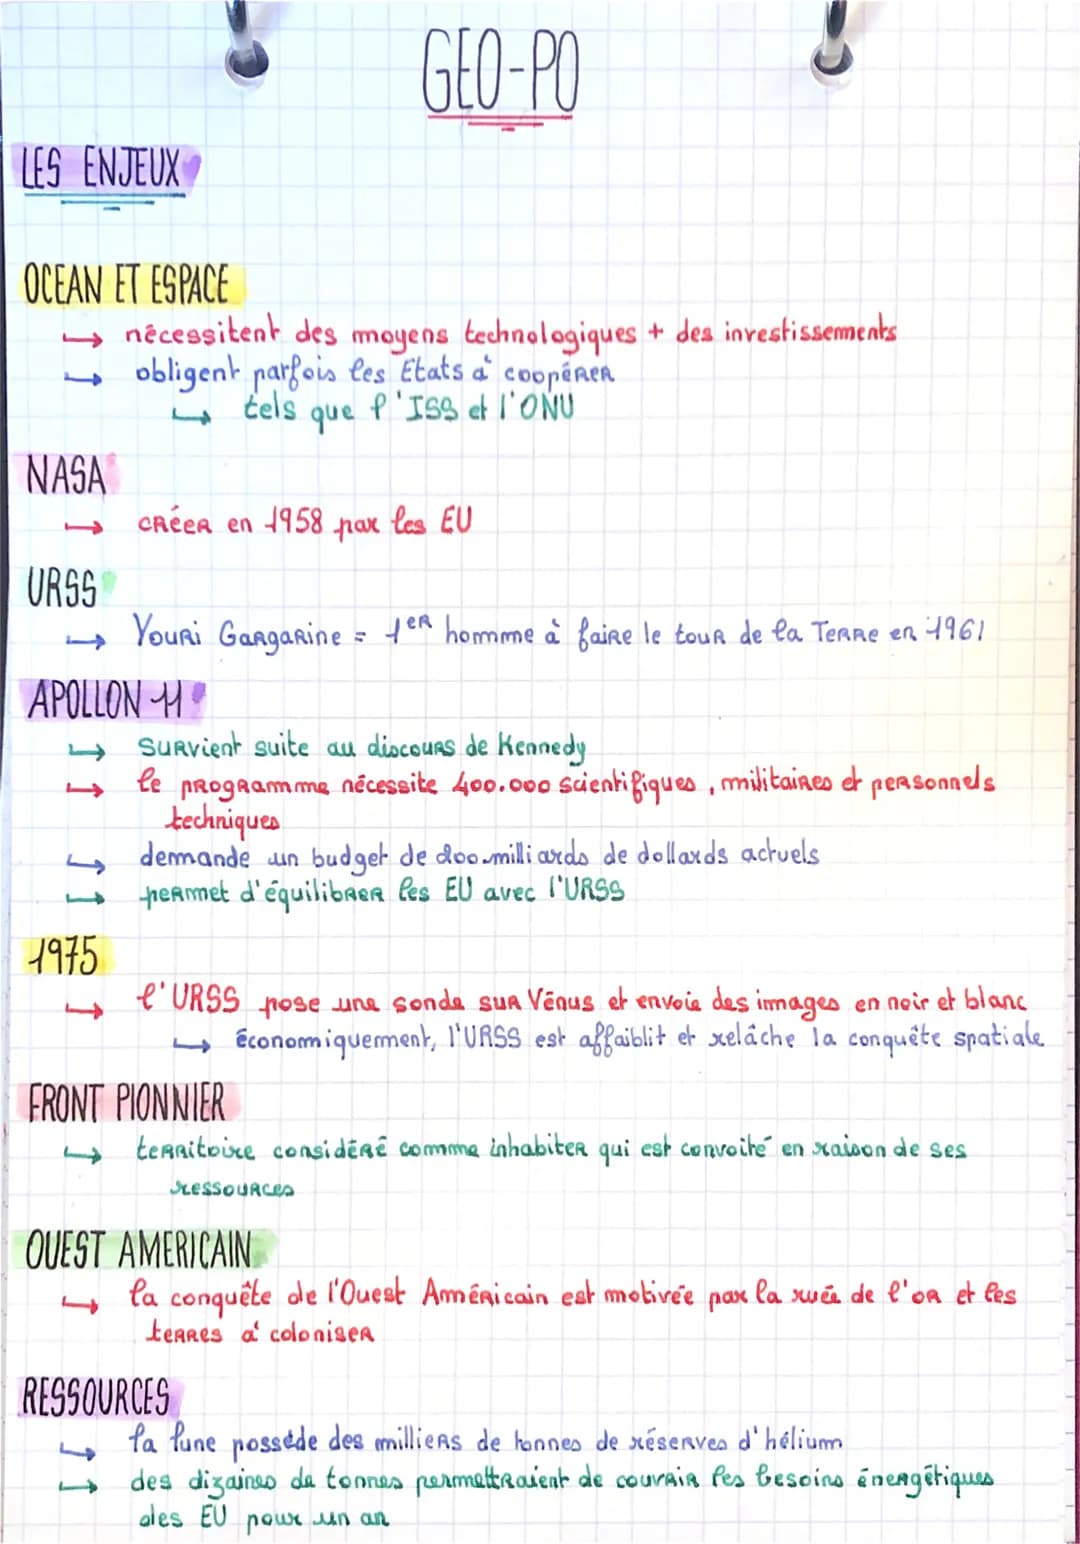 GEO-PO
LES ENJEUX
OCEAN ET ESPACE
↳ nécessitent des moyens technologiques + des investissements
↳ obligent parfois les Etats à coopérer
↳ tels que l'ISS et l'ONU
NASA
↳ créer en 1958 par les EU
URSS
↳ Youri Gargarine = 1er homme à faire le tour de la Terre en 1961
APOLLON 11
↳ survient suite au discours de Kennedy
↳ le programme nécessite 400.000 scientifiques, militaires et personnels
techniques
↳ demande un budget de 200 milliards de dollards actuels
↳ permet d'équilibrer les EU avec l'URSS
1975
↳ l'URSS pose une sonde sur Vénus et envoie des images en noir et blanc
↳ économiquement, l'URSS est affaiblit et relâche la conquête spatiale
FRONT PIONNIER
↳ territoire considéré comme inhabiter qui est convoité en raison de ses
ressources
OUEST AMERICAIN
↳ la conquête de l'Ouest Américain est motivée par la ruée de l'or et les
terres à coloniser
RESSOURCES
↳ la lune posséde des milliers de tonnes de réserves d'hélium
↳ des dizaines de tonnes permettraient de couvrir les besoins énergétiques
des EU pour un an